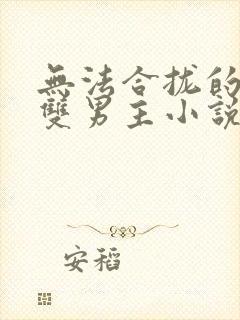 無法合拢的
雙男主小説
安稻